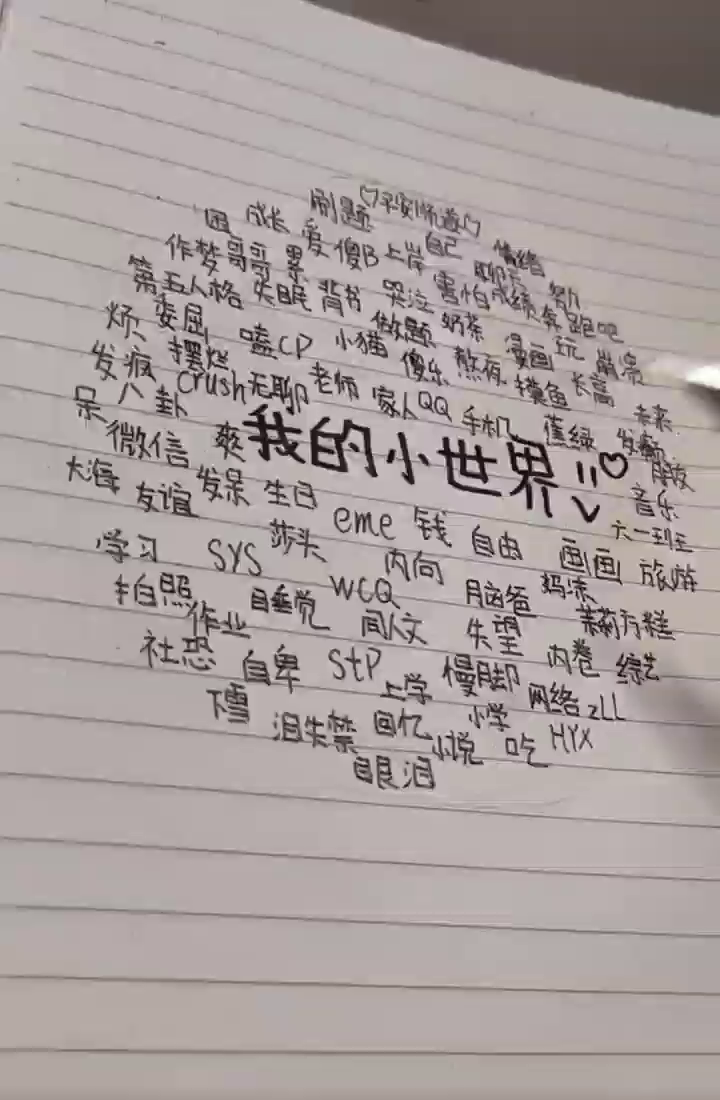 ♡平安顺遂♡
刷题
困 成长 爱 傻B 上岸 自己 聊天 情绪
作梦 哥哥 累 哭泣 害怕 成绩 努力
第五人格 失眠 背书 做题 奶茶 奔跑吧
烦 委屈 嗑CP 小猫 傻乐 熬夜 漫画 玩 崩溃
发疯 摆烂 crush 无聊 老师 家人 QQ 手机 摸鱼 长高 未来
呆 八卦
微信 爽 我的小世界!! ♡ 蕉绿 发癫 朋友
大海 友谊 发呆 生日 eme 钱 自由 画画 音乐
六一班主
学习 SYS 莎头 内向 妈凉 旅游
拍照 睡觉 WCQ 脑爸 茉莉方糕
作业 闻人文 失望 内卷 综艺
社恐 自卑 StP 上学 慢脚 网络 zLL
下雪 泪失禁 回忆 小学 HYX
小说 吃
眼泪